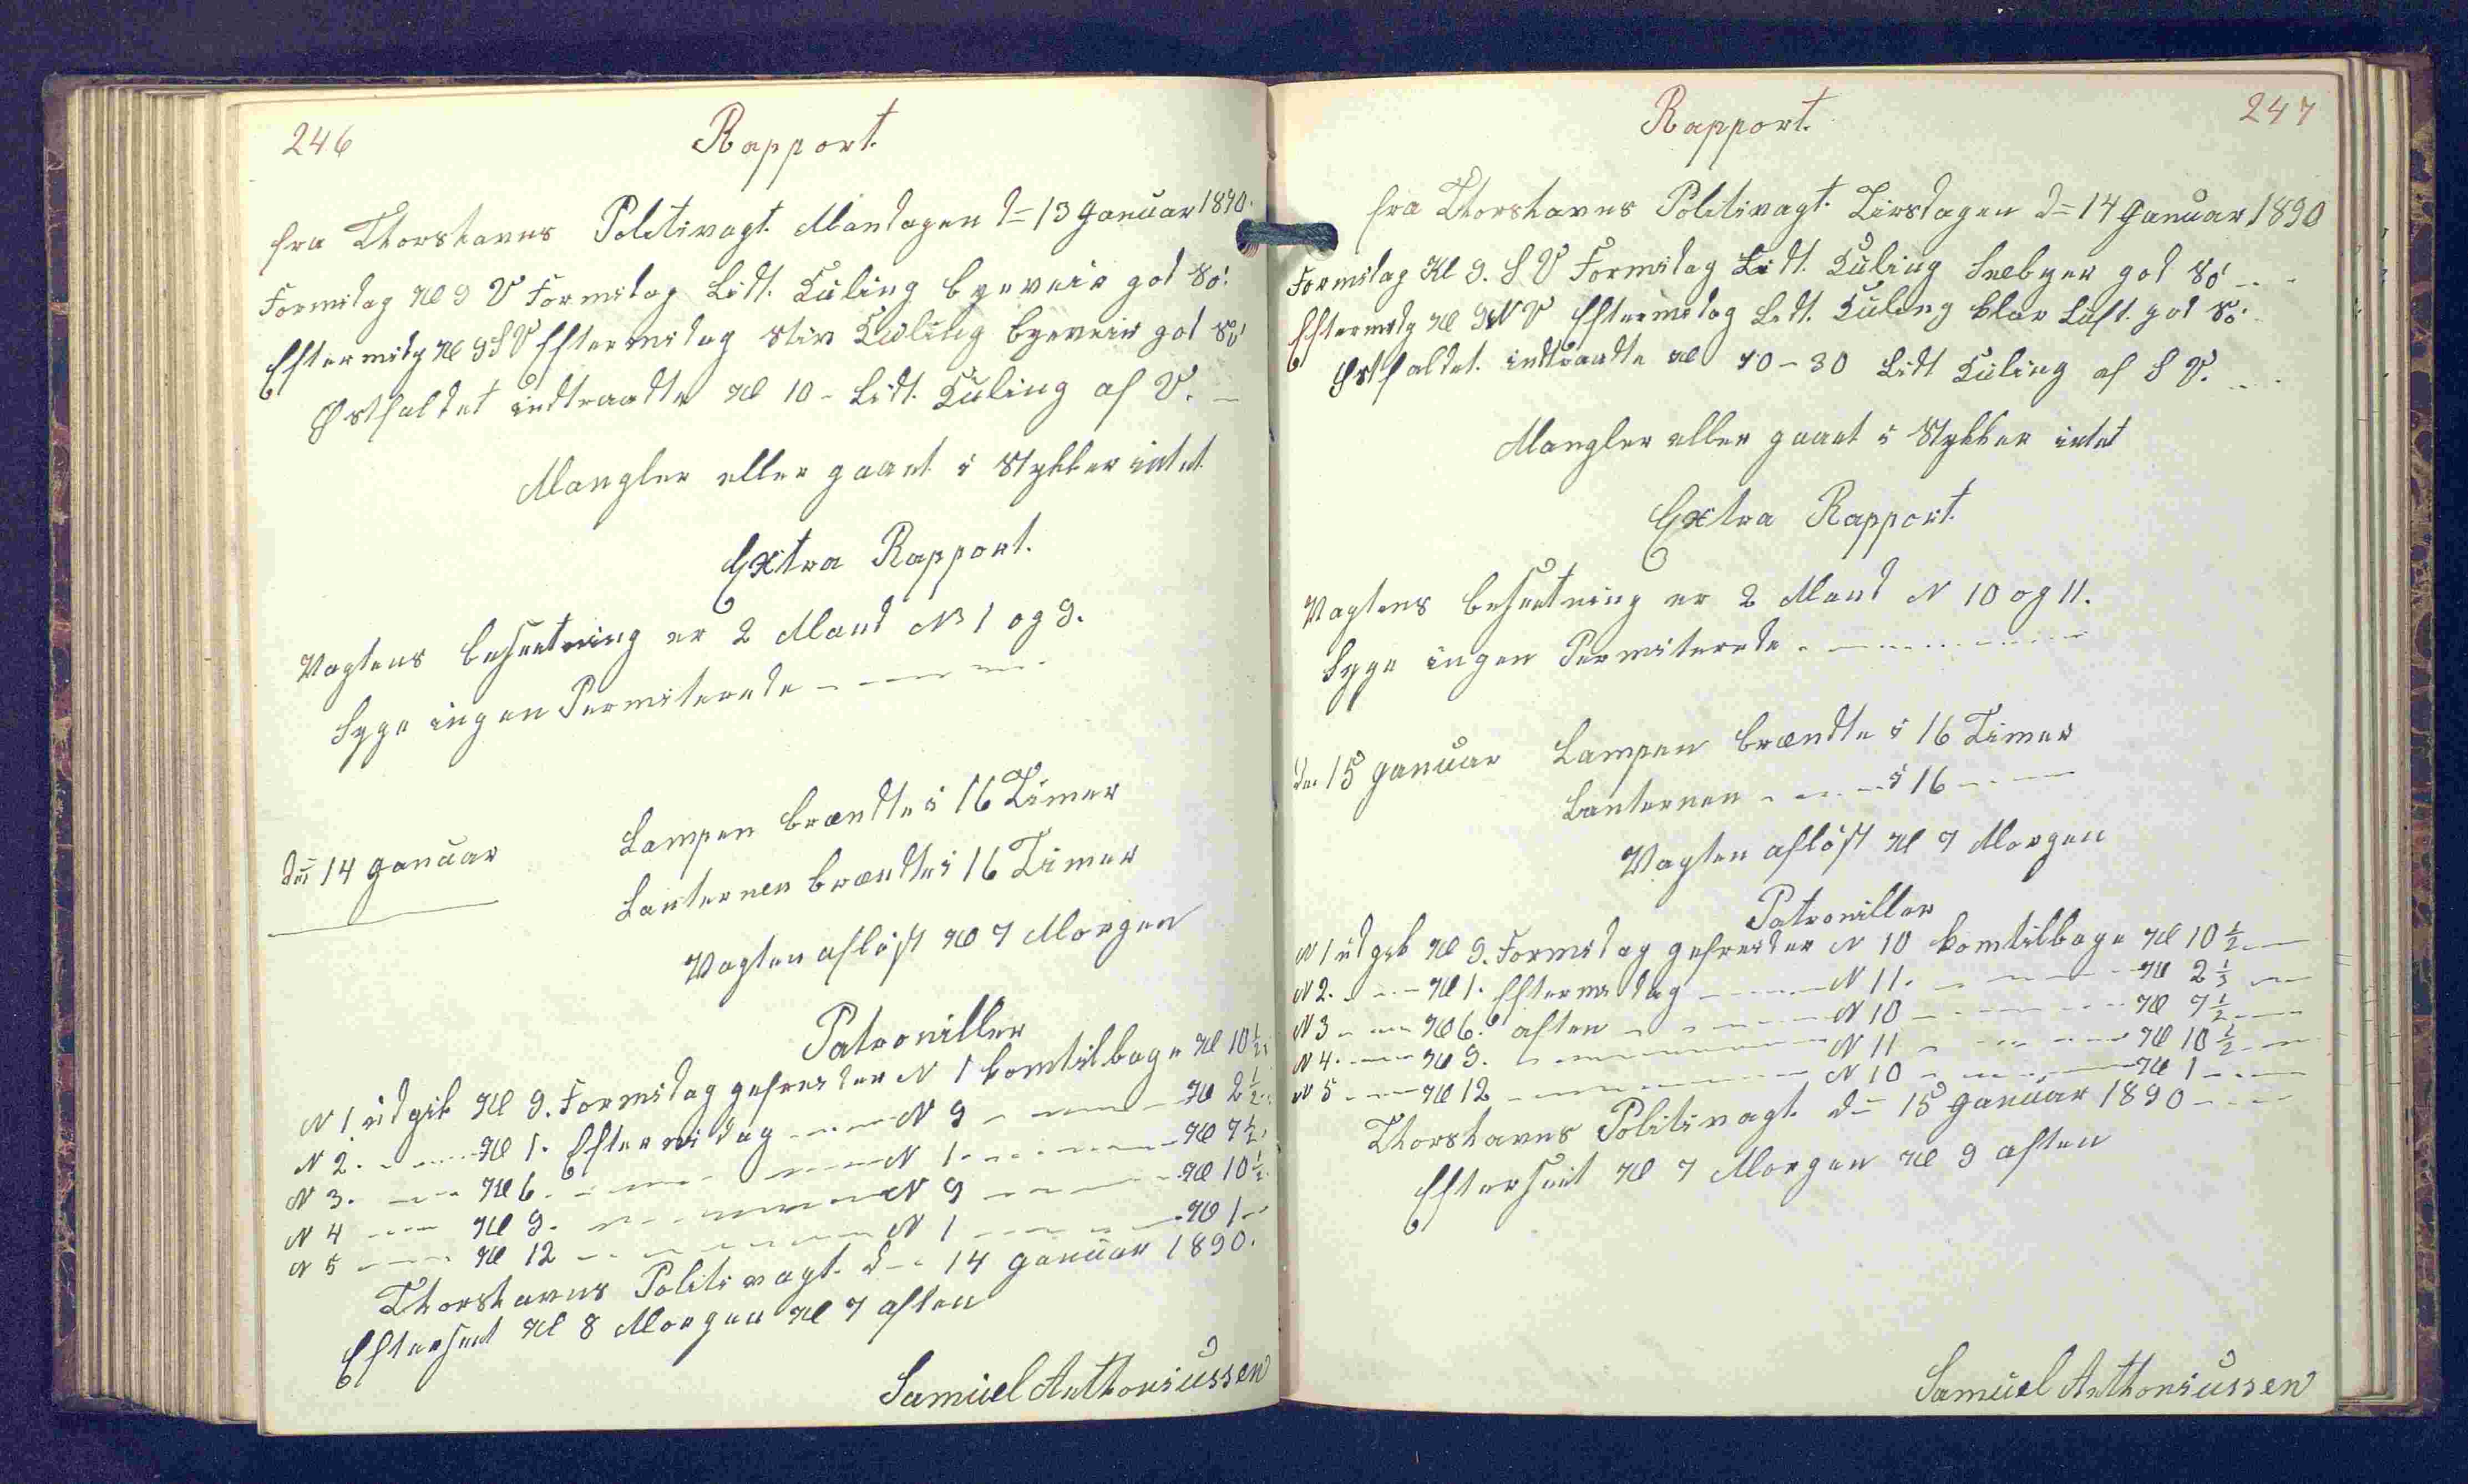 246
Rapport.
fra Thorshavns Politivagt. Mandagen d= 13 Januar 1890.
Formidag Kl 9 V Formidag Lidt. Kuling byeveir god Sö:
Eftermidg Kl 9 SV Eftermidag stiv Kuling byeveir god Sö
Østfaldet indtraadte Kl 10 - Lidt. Kuling af V. -
Mangler eller gaaet i Stykker intet.
Extra Rapport.
Vagtens besætning er 2 Mand No 1 og 9.
Syge ingen Permiterede - - - - - -
den 14 Januar Lampen brændte i 16 Timer
Lanternen brændte i 16 Timer
Vagten aflöst Kl 7 Morgen
Patroniller
N 1 udgik Kl 9. Formidag gefreider N 1 komtilbage Kl 10 1/2
N 2. - - - Kl 1. Eftermidag - - - N 9 - - - Kl 2 1/2
N 3. - - - Kl 6. - - - - - N 1. - - - - Kl 7 1/2.
N 4 - - - Kl 9. - - - - - N 9 - - - - Kl 10 1/2.
N 5 - - - Kl 12 - - - - - N 1 - - - - Kl 1 -
Thorshavns Politivagt. d - - 14 Januar 1890.
Efterseet Kl 8 Morgen Kl 7 aften
Samuel Anthoniussen
247
Rapport.
fra Thorshavns Politivagt. Tirsdagen d= 14 Januar 1890
Formidag Kl 9. S V Formidag Lidt. Kuling Snebyer god Sö - - -
Eftermidg Kl 9 NV Eftermidag Lidt. Kuling klar Luft. god Sö:
Østfaldet. indtraadte Kl 10 - 30 Lidt Kuling af S V. - - -
Mangler eller gaaet i Stykker intet
Extra Rapport.
Vagtens besætning er 2 Mand N 10 og 11.
Syge ingen Permiterede - - - - - - - -
den 15 Januar Lampen brændte i 16 Timer
Lanternen - - - - i 16 - - -
Vagten aflöst Kl 7 Morgen
Patroniller
N 1 udgik Kl 9. Formidag gefreider N 10 komtilbage Kl 10 1/2 -
N 2. - - - Kl 1. Eftermidag - - - N 11. - - - - Kl 2 1/2 -
N 3 - - - Kl 6. aften - - - - N 10 - - - - Kl 7 1/2 - -
N 4. - - - Kl 9. - - - - - - N 11 - - - - Kl 10 1/2 - -
N 5 - - - Kl 12 - - - - - - N 10 - - - - Kl 1 - - -
Thorshavns Politivagt. d= 15 Januar 1890 - - -
Efterseet Kl 7 Morgen Kl 9 aften
Samuel Anthoniussen